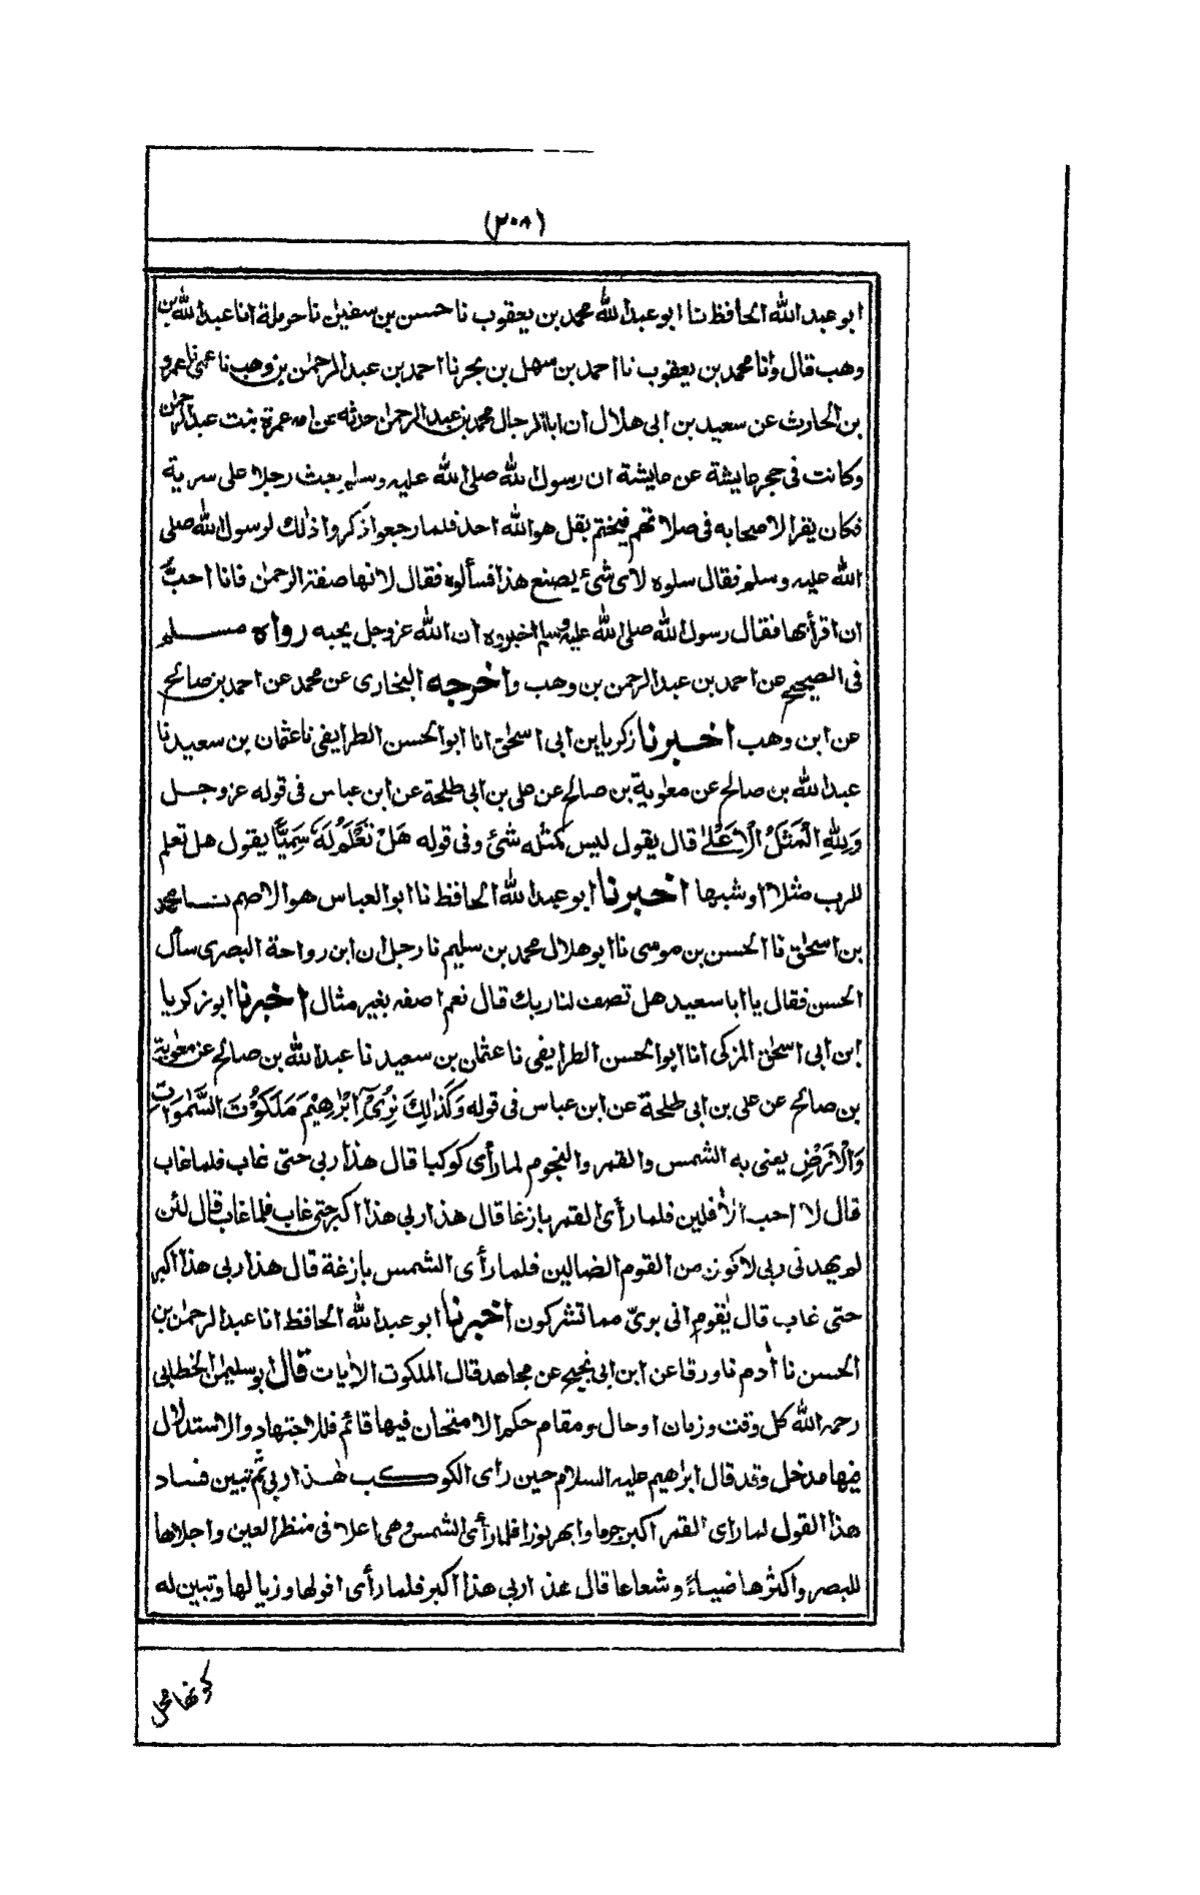 (٢٠٨)
ابو عبد الله الحافظ نا ابو عبد الله محمد بن يعقوب نا حسن بن سفيٰن نا حرملة انا عبد الله بن
وهب قال وانا محمد بن يعقوب نا احمد بن سهل بن بحر نا احمد بن عبد الرحمٰن بن وهب نا عمى نا عمرو
بن الحارث عن سعيد بن ابى هلال ان ابا الرجال محمد بن عبد الرحمٰن حدثه عن امه عمرة بنت عبد الرحمٰن
وكانت فى حجر عايشة عن عايشة ان رسول الله صلى الله عليه وسلم بعث رجلا على سرية
فكان يقرا لاصحابه فى صلاتهم فيختم بقل هو الله احد فلما رجعوا ذكروا ذٰلك لرسول الله صلى
الله عليه وسلم فقال سلوه لاى شئ يصنع هذا فسألوه فقال لانها صفة الرحمٰن فانا احبّ
ان اقرأ بها فقال رسول الله صلى الله عليه وسلم اخبروه ان الله عز وجل يحبه رواه مسلم
فى الصحيح عن احمد بن عبد الرحمن بن وهب واخرجه البخارى عن محمد عن احمد بن صالح
عن ابن وهب اخبرنا زكريا بن ابى اسحٰق انا ابو الحسن الطرايفى نا عثمان بن سعيد نا
عبد الله بن صالح عن معٰوية بن صالح عن على بن ابى طلحة عن ابن عباس فى قوله عز وجل
وَلِلّٰهِ الْمَثَلُ الْاَعْلٰى قال يقول ليس كمثله شئ وفى قوله هَلْ تَعْلَمُ لَهٗ سَمِيًّا يقول هل تعلم
للرب مثلا او شبها اخبرنا ابو عبد الله الحافظ نا ابو العباس هو الاصم نا محمد
بن اسحٰق نا الحسن بن موسى نا ابو هلال محمد بن سليم نا رجل ان ابن رواحة البصرى سأل
الحسن فقال يا ابا سعيد هل تصف لنا ربك قال نعم اصفه بغير مثال اخبرنا ابو زكريا
ابن ابى اسحٰق المزكى انا ابو الحسن الطرايفى نا عثمان بن سعيد نا عبد الله بن صالح عن معٰوية
بن صالح عن على بن ابى طلحة عن ابن عباس فى قوله وَكَذٰلِكَ نُرِىْٓ اِبْرٰهِيْمَ مَلَكُوْتَ السَّمٰوَاتِ
وَالْاَرْضِ يعنى به الشمس والقمر والنجوم لما رأى كوكبا قال هذا ربى حتى غاب فلما غاب
قال لا احب الأفلين فلما رأى القمر بازغا قال هذا ربى هذا اكبر حتى غاب فلما غاب قال لئن
لم يهدنى ربى لاكونن من القوم الضالين فلما رأى الشمس بازغة قال هذا ربى هذا اكبر
حتى غاب قال يٰقوم انى برىّ مما تشركون اخبرنا ابو عبد الله الحافظ انا عبد الرحمٰن بن
الحسن نا أدم نا ورقا عن ابن ابى نجيح عن مجاهد قال الملكوت الأيات قال ابو سليمٰن الخطابى
رحمه الله كل وقت وزمان او حال ومقام حكم الامتحان فيها قائم فللاجتهاد والاستدلال
فيها مدخل وقد قال ابرٰهيم عليه السلام حين رأى الكوكب هٰذا ربى ثم تبين فساد
هذا القول لما رأى القمر اكبر جرما وابهر نورا فلما رأى الشمس وهى اعلا فى منظر العين واجلاها
للبصر واكثرها ضياءً وشعاعا قال هذا ربى هذا اكبر فلما رأى افولها وزيالها وتبين له
كونها محل